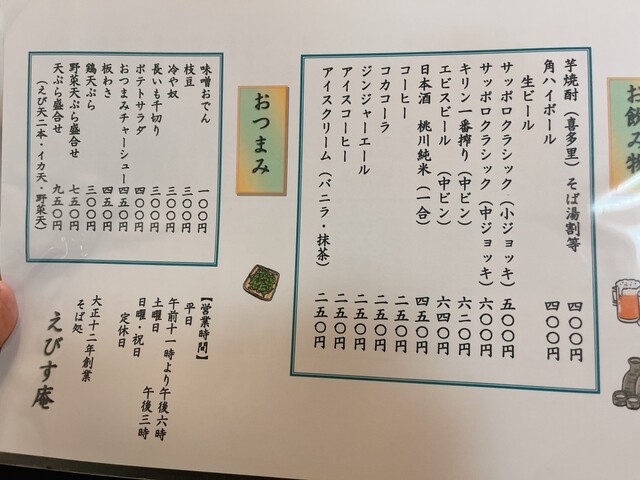 お飲み物
芋焼酎（喜多里）そば湯割等 四〇〇円
角ハイボール 四〇〇円
生ビール
サッポロクラシック（小ジョッキ） 五〇〇円
サッポロクラシック（中ジョッキ） 六〇〇円
キリン一番搾り（中ビン） 六二〇円
エビスビール（中ビン） 六四〇円
日本酒 桃川純米（一合） 四五〇円
コーヒー 二五〇円
コカコーラ 二五〇円
ジンジャーエール 二五〇円
アイスコーヒー 二五〇円
アイスクリーム（バニラ・抹茶） 二五〇円
おつまみ
味噌おでん 一〇〇円
枝豆 三〇〇円
冷や奴 三〇〇円
長いも千切り 三〇〇円
ポテトサラダ 四〇〇円
おつまみチャーシュー 四五〇円
板わさ 四五〇円
鶏天ぷら 三〇〇円
野菜天ぷら盛合せ 七五〇円
天ぷら盛合せ 九五〇円
（えび天二本・イカ天・野菜天）
【営業時間】
平日
午前十一時より午後六時
土曜日 午後三時
日曜・祝日
定休日
大正十二年創業
そば処
えびす庵